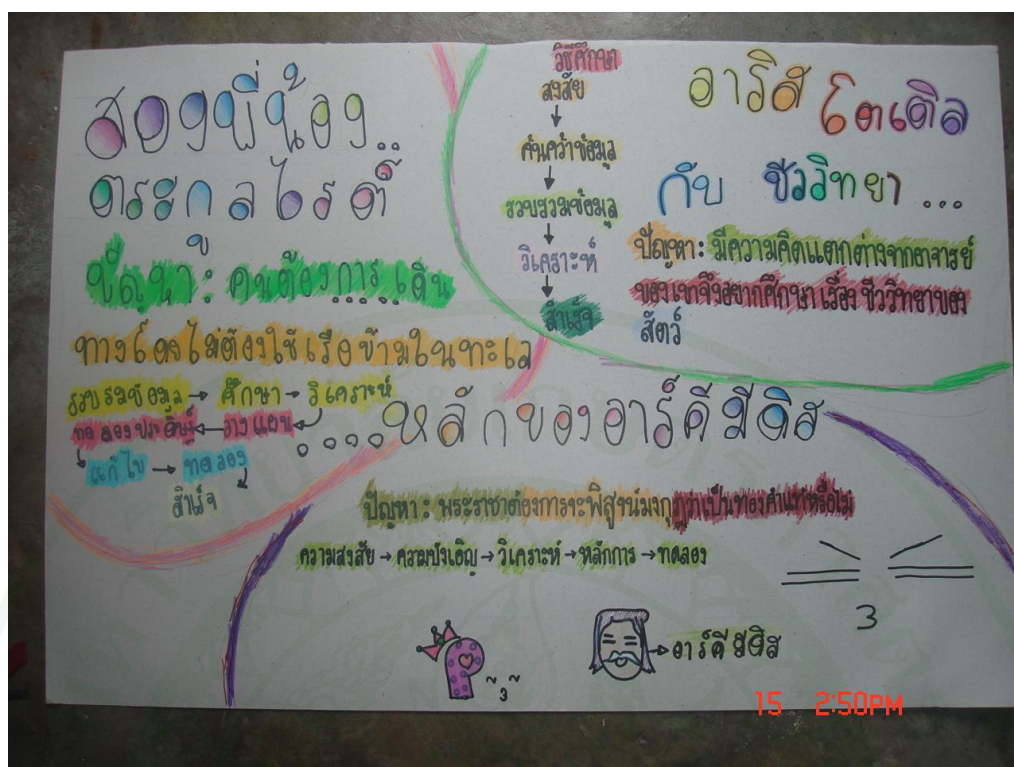 สองพี่น้อง..
ตระกูลไรต์
ปัญหา : คนต้องการเดิน
ทางโดยไม่ต้องใช้เรือข้ามในทะเล
รวบรมข้อมูล → ศึกษา → วิเคราะห์
ทดลองประดิษฐ์ ← วางแผน
แก้ไข → ทดลอง
สำเร็จ
วิธีศึกษา
สงสัย
ค้นคว้าข้อมูล
รวบรวมข้อมูล
วิเคราะห์
สำเร็จ
อาริสโตเติล
กับ ชีววิทยา...
ปัญหา : มีความคิดแตกต่างจากอาจารย์
ของเขาจึงอยากศึกษา เรื่อง ชีววิทยาของ
สัตว์
....หลักของอาร์คีมีดิส
ปัญหา : พระราชาต้องการจะพิสูจน์มงกุฎว่าเป็นทองคำแท้หรือไม่
ความสงสัย → ความบังเอิญ → วิเคราะห์ → หลักการ → ทดลอง
3
P ~3~
อาร์คีมีดิส
15 2:50PM